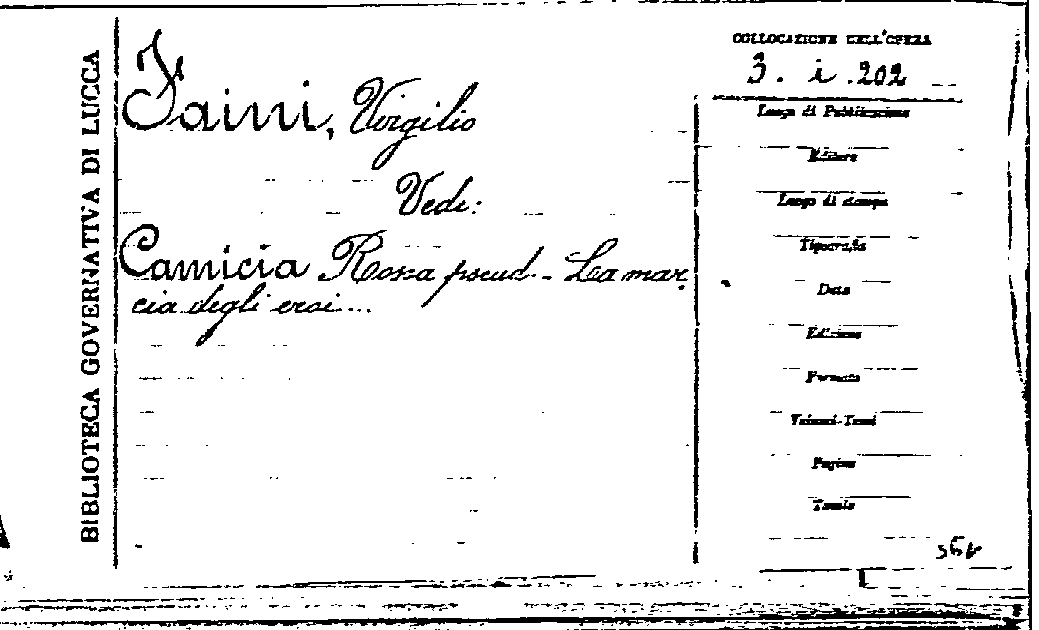 BIBLIOTECA GOVERNATIVA DI LUCCA
Faini, Virgilio
Vedi:
Camicia Rossa pseud - La mar
cia degli eroi...
COLLOCAZIONE DELL'OPERA
3. i. 202
Luogo di Pubblicazione
Editore
Luogo di stampa
Tipografia
Data
Edizione
Formato
Volumi-Tomi
Pagine
Tavole